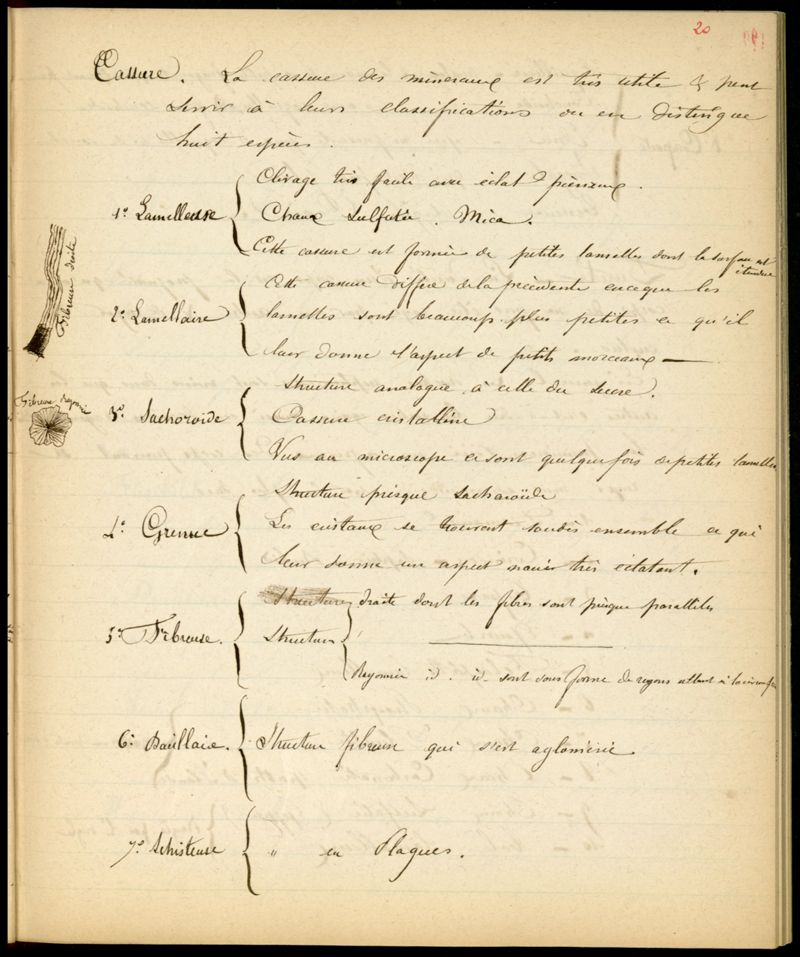 20
Cassure. La cassure des mineraux est très utile & peut
servir à leurs classifications on en distingue
huit espèces.
Clivage très facile avec éclat
1º Lamelleuse
Chaux Sulfatée. Mica.
Cette cassure est formée de petites lamelles dont la surface est
étendue
Cette cassure diffère de la précédente en ce que les
2º Lamellaire
lamelles sont beaucoup plus petites ce qu'il
leur donne l'aspect de petits morceaux —
Structure analogue à celle du sucre.
3º Sacharoïde
Cassure cristalline
Vus au microscope ce sont quelquefois de petites lamelles
Structure presque sacharoïde
4º Grenue
Les cristaux se trouvent soudés ensemble ce qui
leur donne un aspect très éclatant.
Structure droite dont les fibres sont presque parallèles
5º Fibreuse.
Structure
Rayonnée id. id. sont sous forme de rayons allant à la
6º Bacillaire.
Structure fibreuse qui s'est aglomérée
7º Schisteuse
" en Plaques.
Fibreuse droite
Fibreuse rayonnée